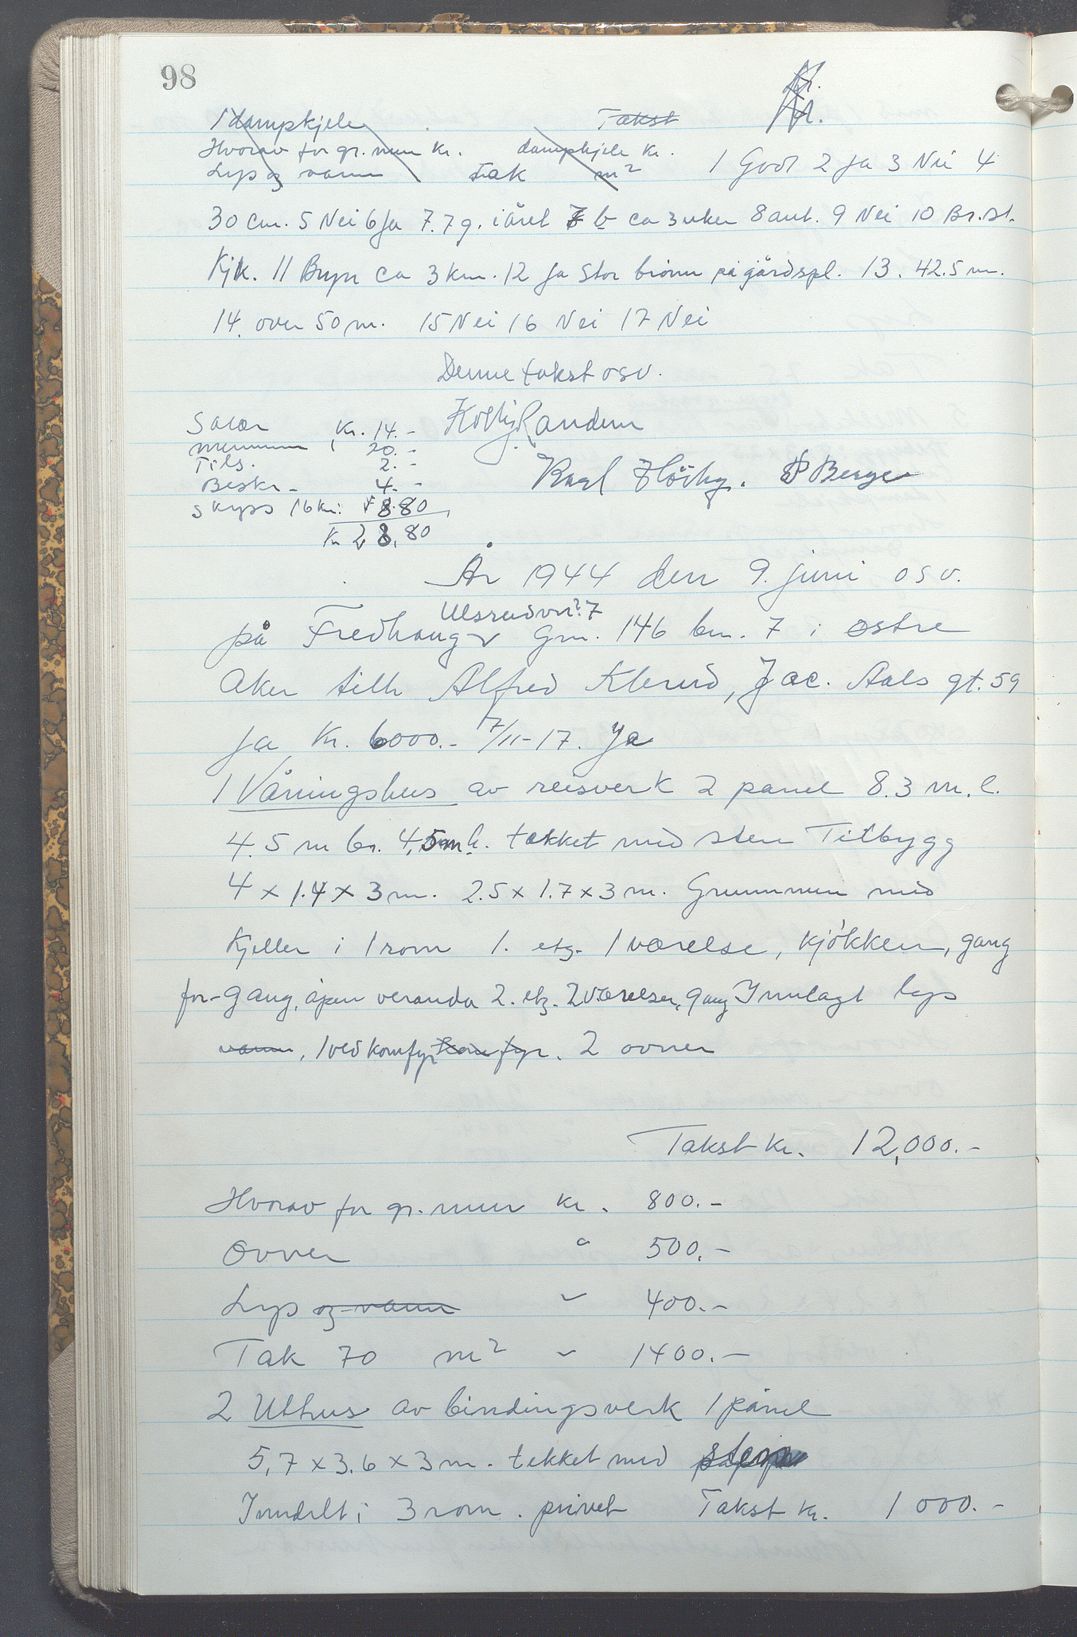 98
1 dampkjele Takst Kr.
Hvorav for gr. mur Kr. dampkjele Kr. Kr.
Lys og vann Tak m² 1 Godt 2 Ja 3 Nei 4
30 cm. 5 Nei 6 Ja 7. 7 g. i året 7 b ca 3 uker 8 ant. 9 Nei 10 Br.st.
Kjk. 11 Bryn ca 3 km. 12 Ja Stor brønn på gårdspl. 13. 42.5 m.
14. over 50 m. 15 Nei 16 Nei 17 Nei
Denne takst osv.
Salær Kr. 14.-
20.-
Tils. 2.-
Beskr. 4.-
Skyss 16 km: 8.80
Kr.
Karl Høiby. Berge
År 1944 den 9. juni osv.
Ulsrudvn. 7
på Fredhaug Gnr. 146 bn. 7 i østre
Aker tilh Alfred Klerud, Jac. Aals gt. 59
Ja, Kr. 6000.- 7/11-17. Ja
1 Våningshus av reisverk 2 panel 8.3 m. l.
4.5 m br. 4,5 m h. tekket med sten Tilbygg
4 x 1.4 x 3 m. 2.5 x 1.7 x 3 m. Grunnmur med
Kjeller i 1 rom 1. etg. 1 værelse, kjökken, gang
for-gang, åpen veranda 2. etg. 2 værelser, gang Innlagt lys
vann, 1 vedkomfyr komfyr. 2 ovner
Takst Kr. 12,000.-
Hvorav for gr. mur Kr. 800.-
Ovner " 500.-
Lys og vann " 400.-
Tak 70 m² " 1400.-
2 Uthus av bindingsverk 1 panel
5,7 x 3.6 x 3 m. tekket med
Inndelt i 3 rom. privet Takst Kr. 1000.-